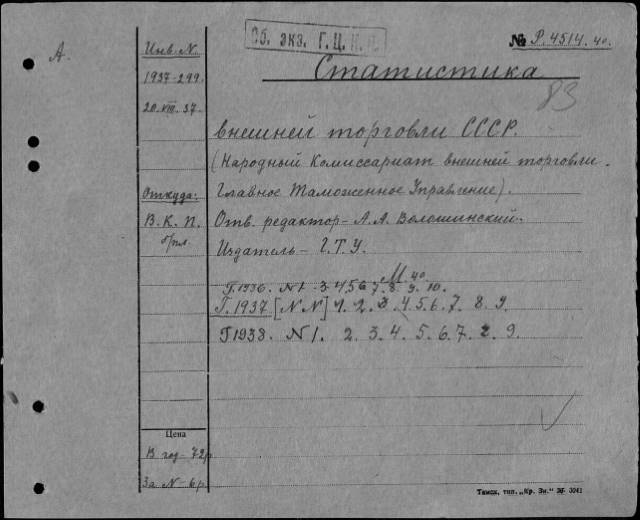 Об. экз. Г.Ц.К.П.
№ Р.4514.40.
А.
Инв. N.
1937-299.
20.VIII.37.
Статистика
83
внешней торговли СССР.
(Народный Комиссариат внешней торговли.
Откуда:
Главное Таможенное Управление).
В.К.П.
Отв. редактор - А.А. Волошинский.
бпл.
Издатель - Г.Т.У.
М 40
Г.1936. N1. 3.4.5.6.7.8.9.10.
Г.1937 [N N] 1. 2. 3. 4. 5. 6. 7. 8. 9.
Г1938. N1. 2. 3. 4. 5. 6. 7. 8. 9.
Цена
В год - 72р
За N - 6р
Тамск. тип. „Кр. Зн." Зб. 3241